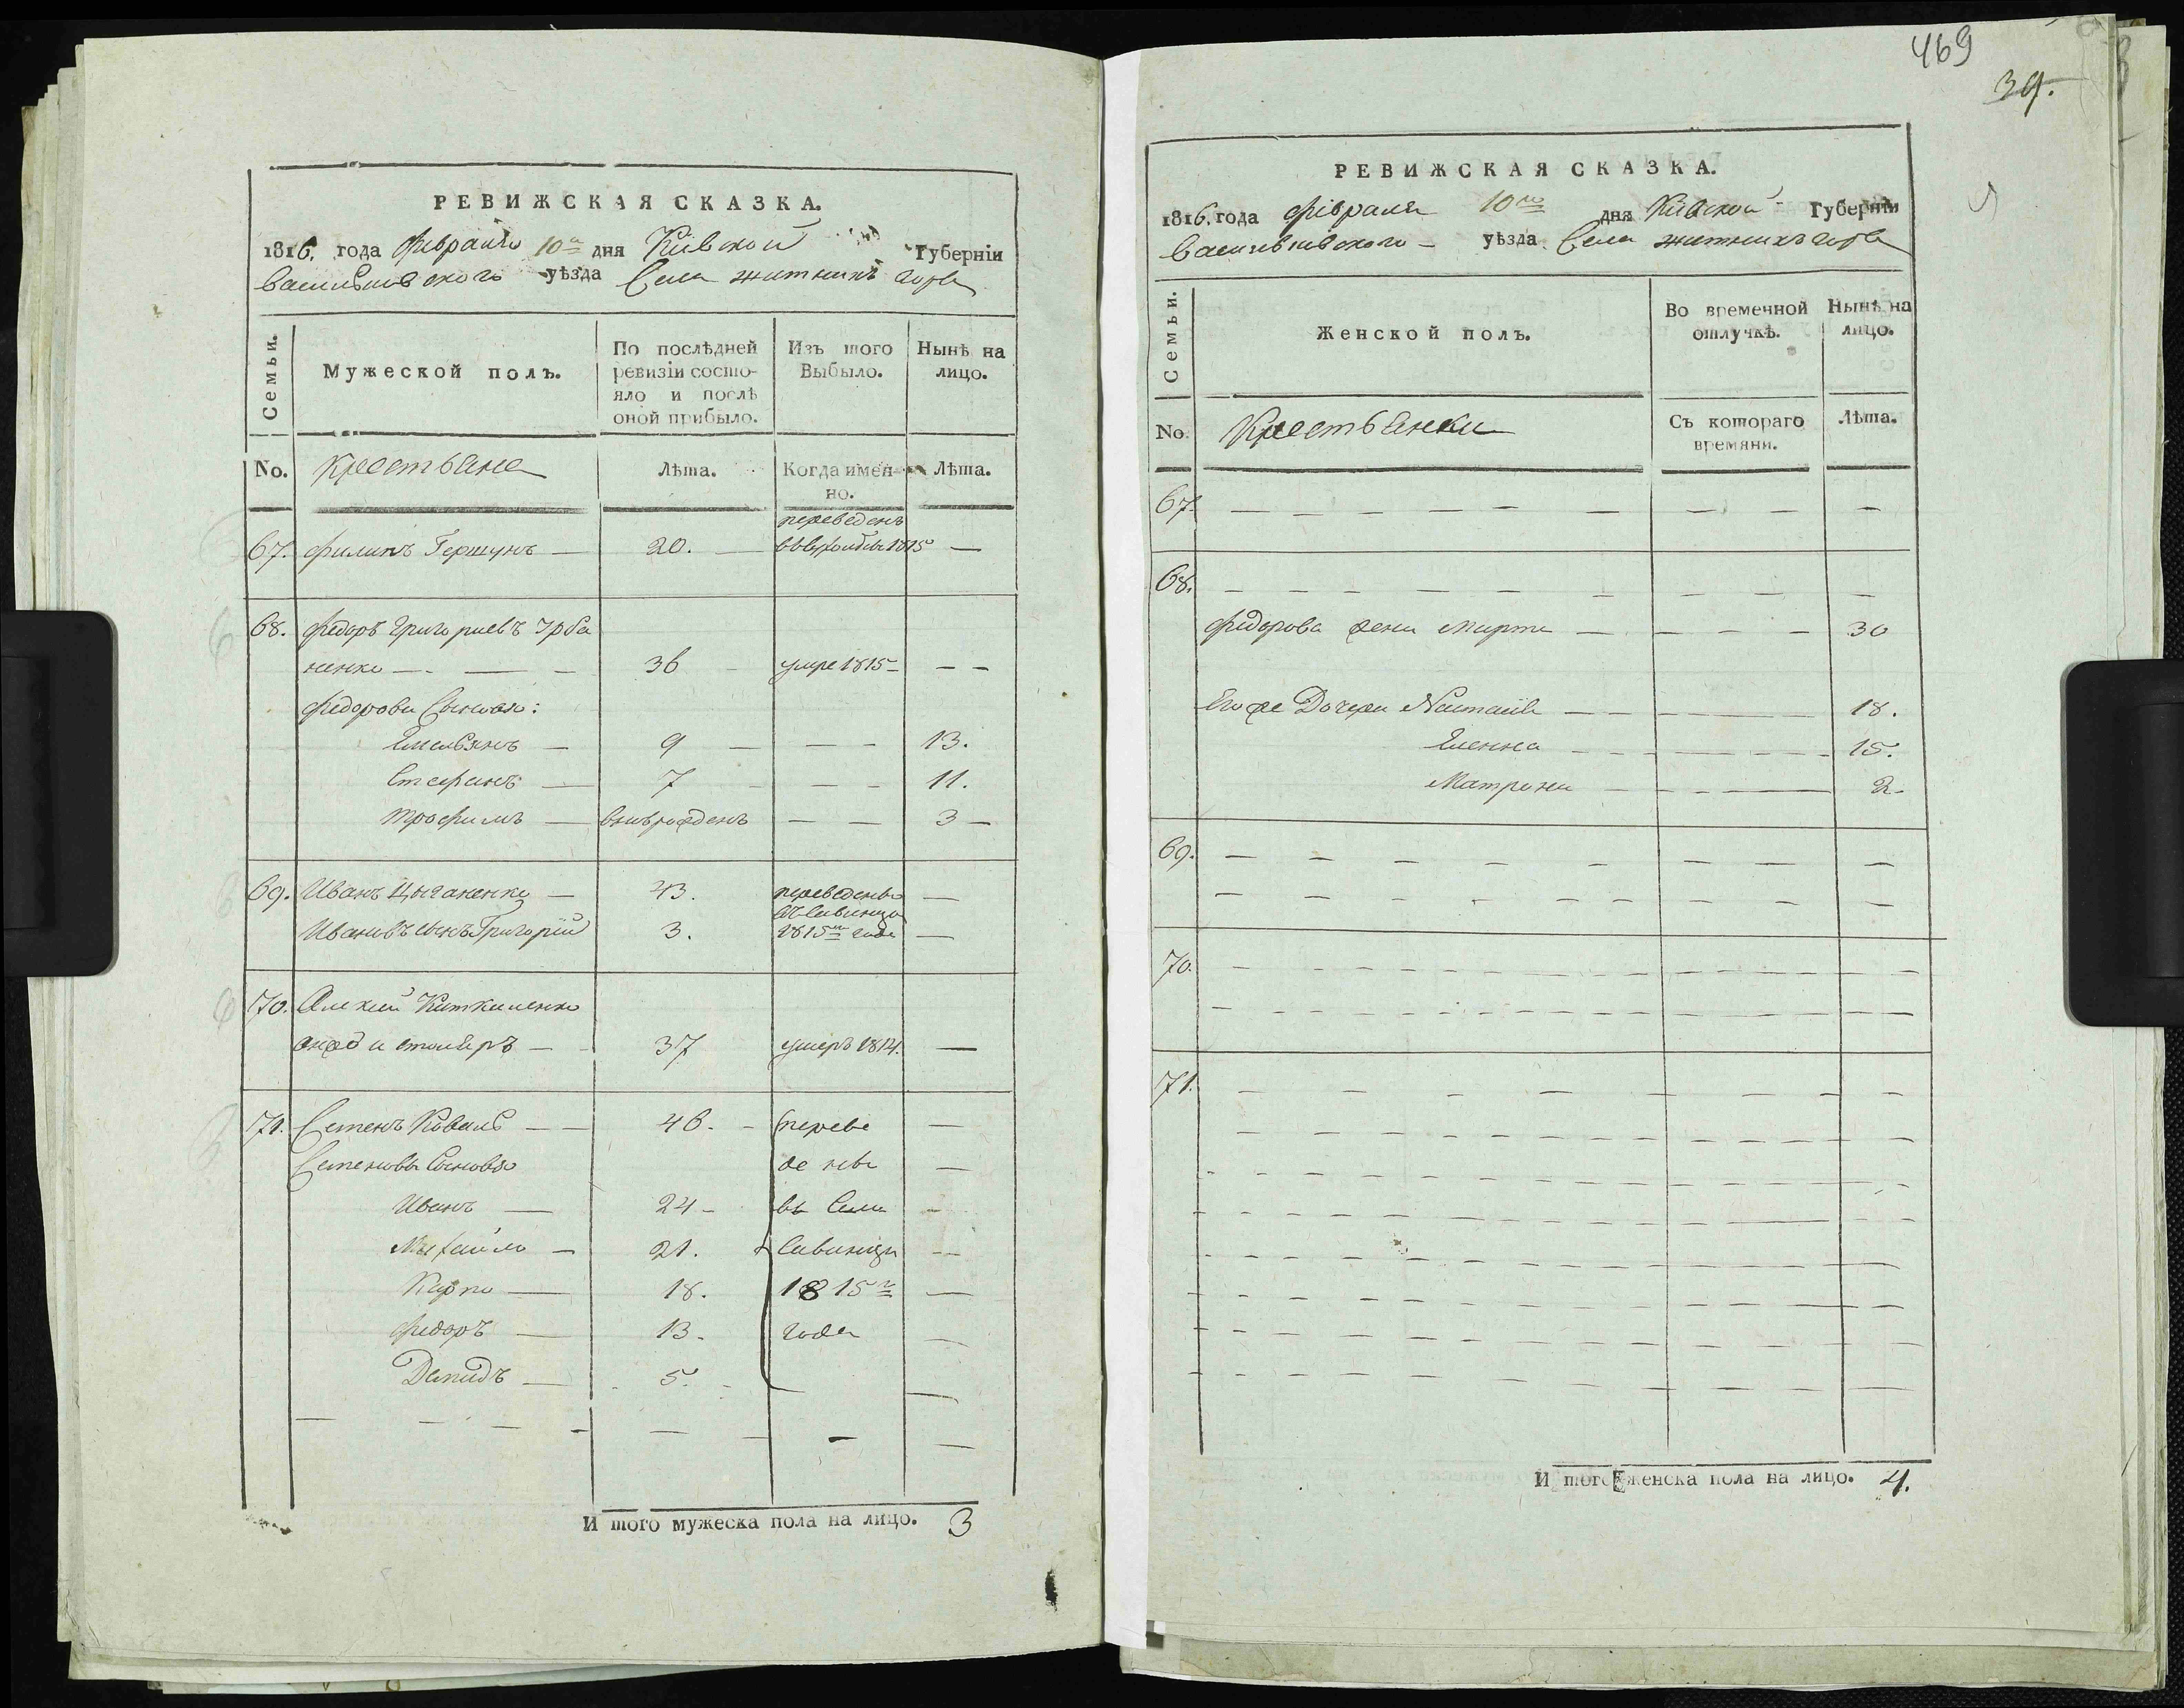 РЕВИЖСКАЯ СКАЗКА.
1816. года февраля 10го дня Кіевской Губерніи
Васильковского уѣзда Села житнихъ горъ
Семьи.
Мужеской полъ.
По послѣдней ревизіи состояло и послѣ оной прибыло.
Изъ того Выбыло.
Нынѣ на лицо.
No.
Крестьяне
Лѣта.
Когда именно.
Лѣта.
67. филипъ Гершунъ — 20. — переведенъ 1815 —
68. федоръ Григориевъ Урба
ненко — 36 — умре 1815 — —
федорови Сыновья:
Емельянъ — 9 — — — 13.
Стефанъ — 7 — — — 11.
Трофимъ — вновърожденъ — — 3 —
69. Иванъ Цыганенко — 43. переведены —
въ Савинци
Ивановъ сынъ Григорій 3. 1815го года —
70. Алексей Киткиленко
онжъ и столяръ — 37 умеръ 1814. —
71. Семенъ Коваль — — 46. — переве —
Семеновы Сыновья дены —
Иванъ — 24 — въ Село —
Михайло — 21. Савинци —
Карпо — 18. 1815го —
федоръ — 13. года —
Демидъ — 5. — —
— — — — — — — —
И того мужеска пола на лицо. 3
469
39.
РЕВИЖСКАЯ СКАЗКА.
1816. года февраля 10го дня Кіевской Губерніи
Васильковского — уѣзда Села житнихъ горъ
Семьи.
Женской полъ.
Во временной отлучкѣ.
Нынѣ на лицо.
No.
Крестьянки
Съ котораго времяни.
Лѣта.
67. — — — — — — — — — —
68. — — — — — — — — — —
федорова жена Марта — — — — 30
Его же Дочери Настасія — — — 18.
Еленна — — — 15.
Матрона — — — 2.
69. — — — — — — — — —
— — — — — — — — —
70. — — — — — — — — —
— — — — — — — — —
71. — — — — — — — —
И того женска пола на лицо. 4.